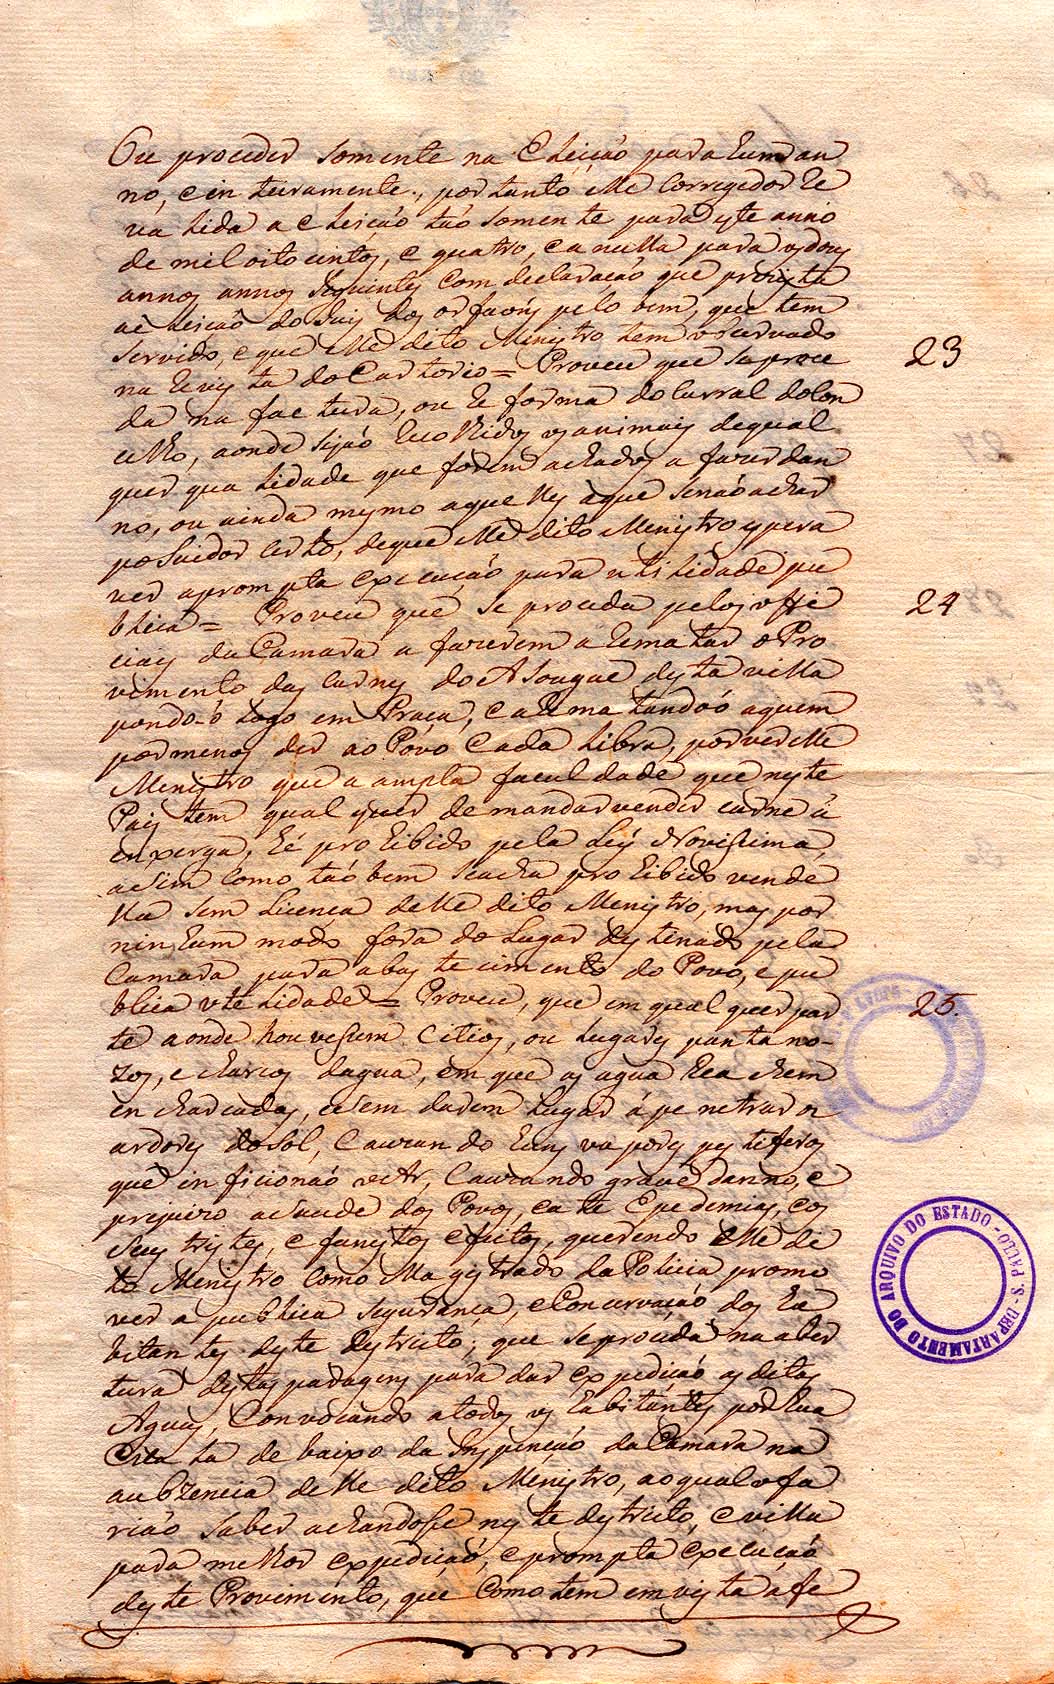 Ou proceder somente na Eleiçaõ para hum an
no, e inteiramente, por tanto elle Corregedor he
va lida a eleiçaõ taõ somente para este anno
de mil oitocentos, e quatro, e anulla para os dous
annos annos seguintes com declaraçaõ que proiesta
aeleiçaõ do Juiz dos orfaons pelo bem, que tem
servido, e que elle dito Menistro tem observado
na Revista do Cartorio = Proveu que se proce
23
da na factura, ou reforma do Curral do Con
celho, aonde sejaõ recolhidos os animais de qual
quer qualidade que forem achados a fazer dan
no, ou ainda mesmo aquelles aque senaõ achar
posuidor certo, deque elle dito Menistro espera
ver aprompta execuçaõ para utilidade pu
blica = Proveu que se proceda pelos offi
24
ciais da Camara a fazerem a rematar o Pro
vimento das Carnes do Asougue desta villa
pondo-o logo em Praça, e a Rematandoó aquem
por menos der ao Povo Cada libra, por ver elle
Menistro que a ampla faculdade que neste
Pais tem qual quer de mandar vender carne á
enxerga, hé prohibido pela Ley Novissima,
asim como taõ bem seacha prohibido vende
lla sem Licença delle dito Menistro, mas por
nenhum modo fora do Lugar destinado pela
Camara para abastecimento do Povo, e pu
blica utelidade = Proveu, que em qual quer par
25.
te aonde houvessem Citios, ou lugares pantano-
zos, e charcos dagua, em que as agua se a chem
en charcadas, e sem darem lugar á penetrar os
ardores do sol, Cauzando huns vapores pestiferos
que inficionaõ o Ar, Cauzando grave danno, e
prejuizo aSaude dos Povos, e a te Epedemias, e os
seus tristes, e funestos efeitos, querendo elle di
to Menistro como Magistrado da Policia promo
ver a publica segurança, e Concervaçaõ dos ha
bitantes deste destricto; que se proceda na aber
tura destas paragens para dar expediçaõ as ditas
Aguas, Convocando a todos os habitantes por hua
Cita ta de baixo da Inspençaõ da Camara na
aubzencia delle dito Menistro, ao qual o fa
riaõ saber achandosse neste destricto, e villa
para melhor expediçaõ, e prompta execuçaõ
deste Provimento, que como tem em vista a fe
DEPARTAMENTO DO ARQUIVO DO ESTADO - S. PAULO -